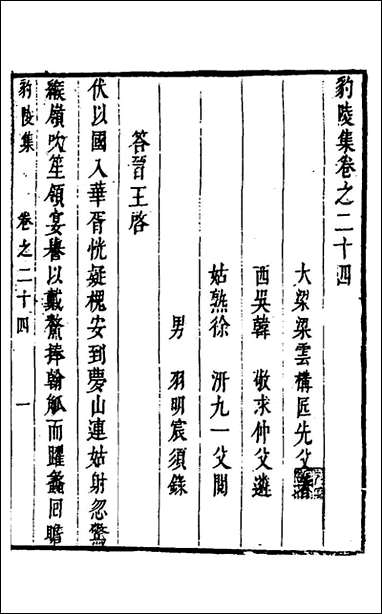 豹陵集卷之二十四
大梁梁雲構匠先父著
西吳韓　敬求仲父選
姑熟徐　汧九一父閱
男　羽明宸須錄
答晉王啓
伏以國入華胥恍疑槐安到夢山連姑射忽驚
緱嶺吹笙領宴譽以戴鰲捧翰觚而躍蠡回瞻
豹陵集　卷之二十四　一